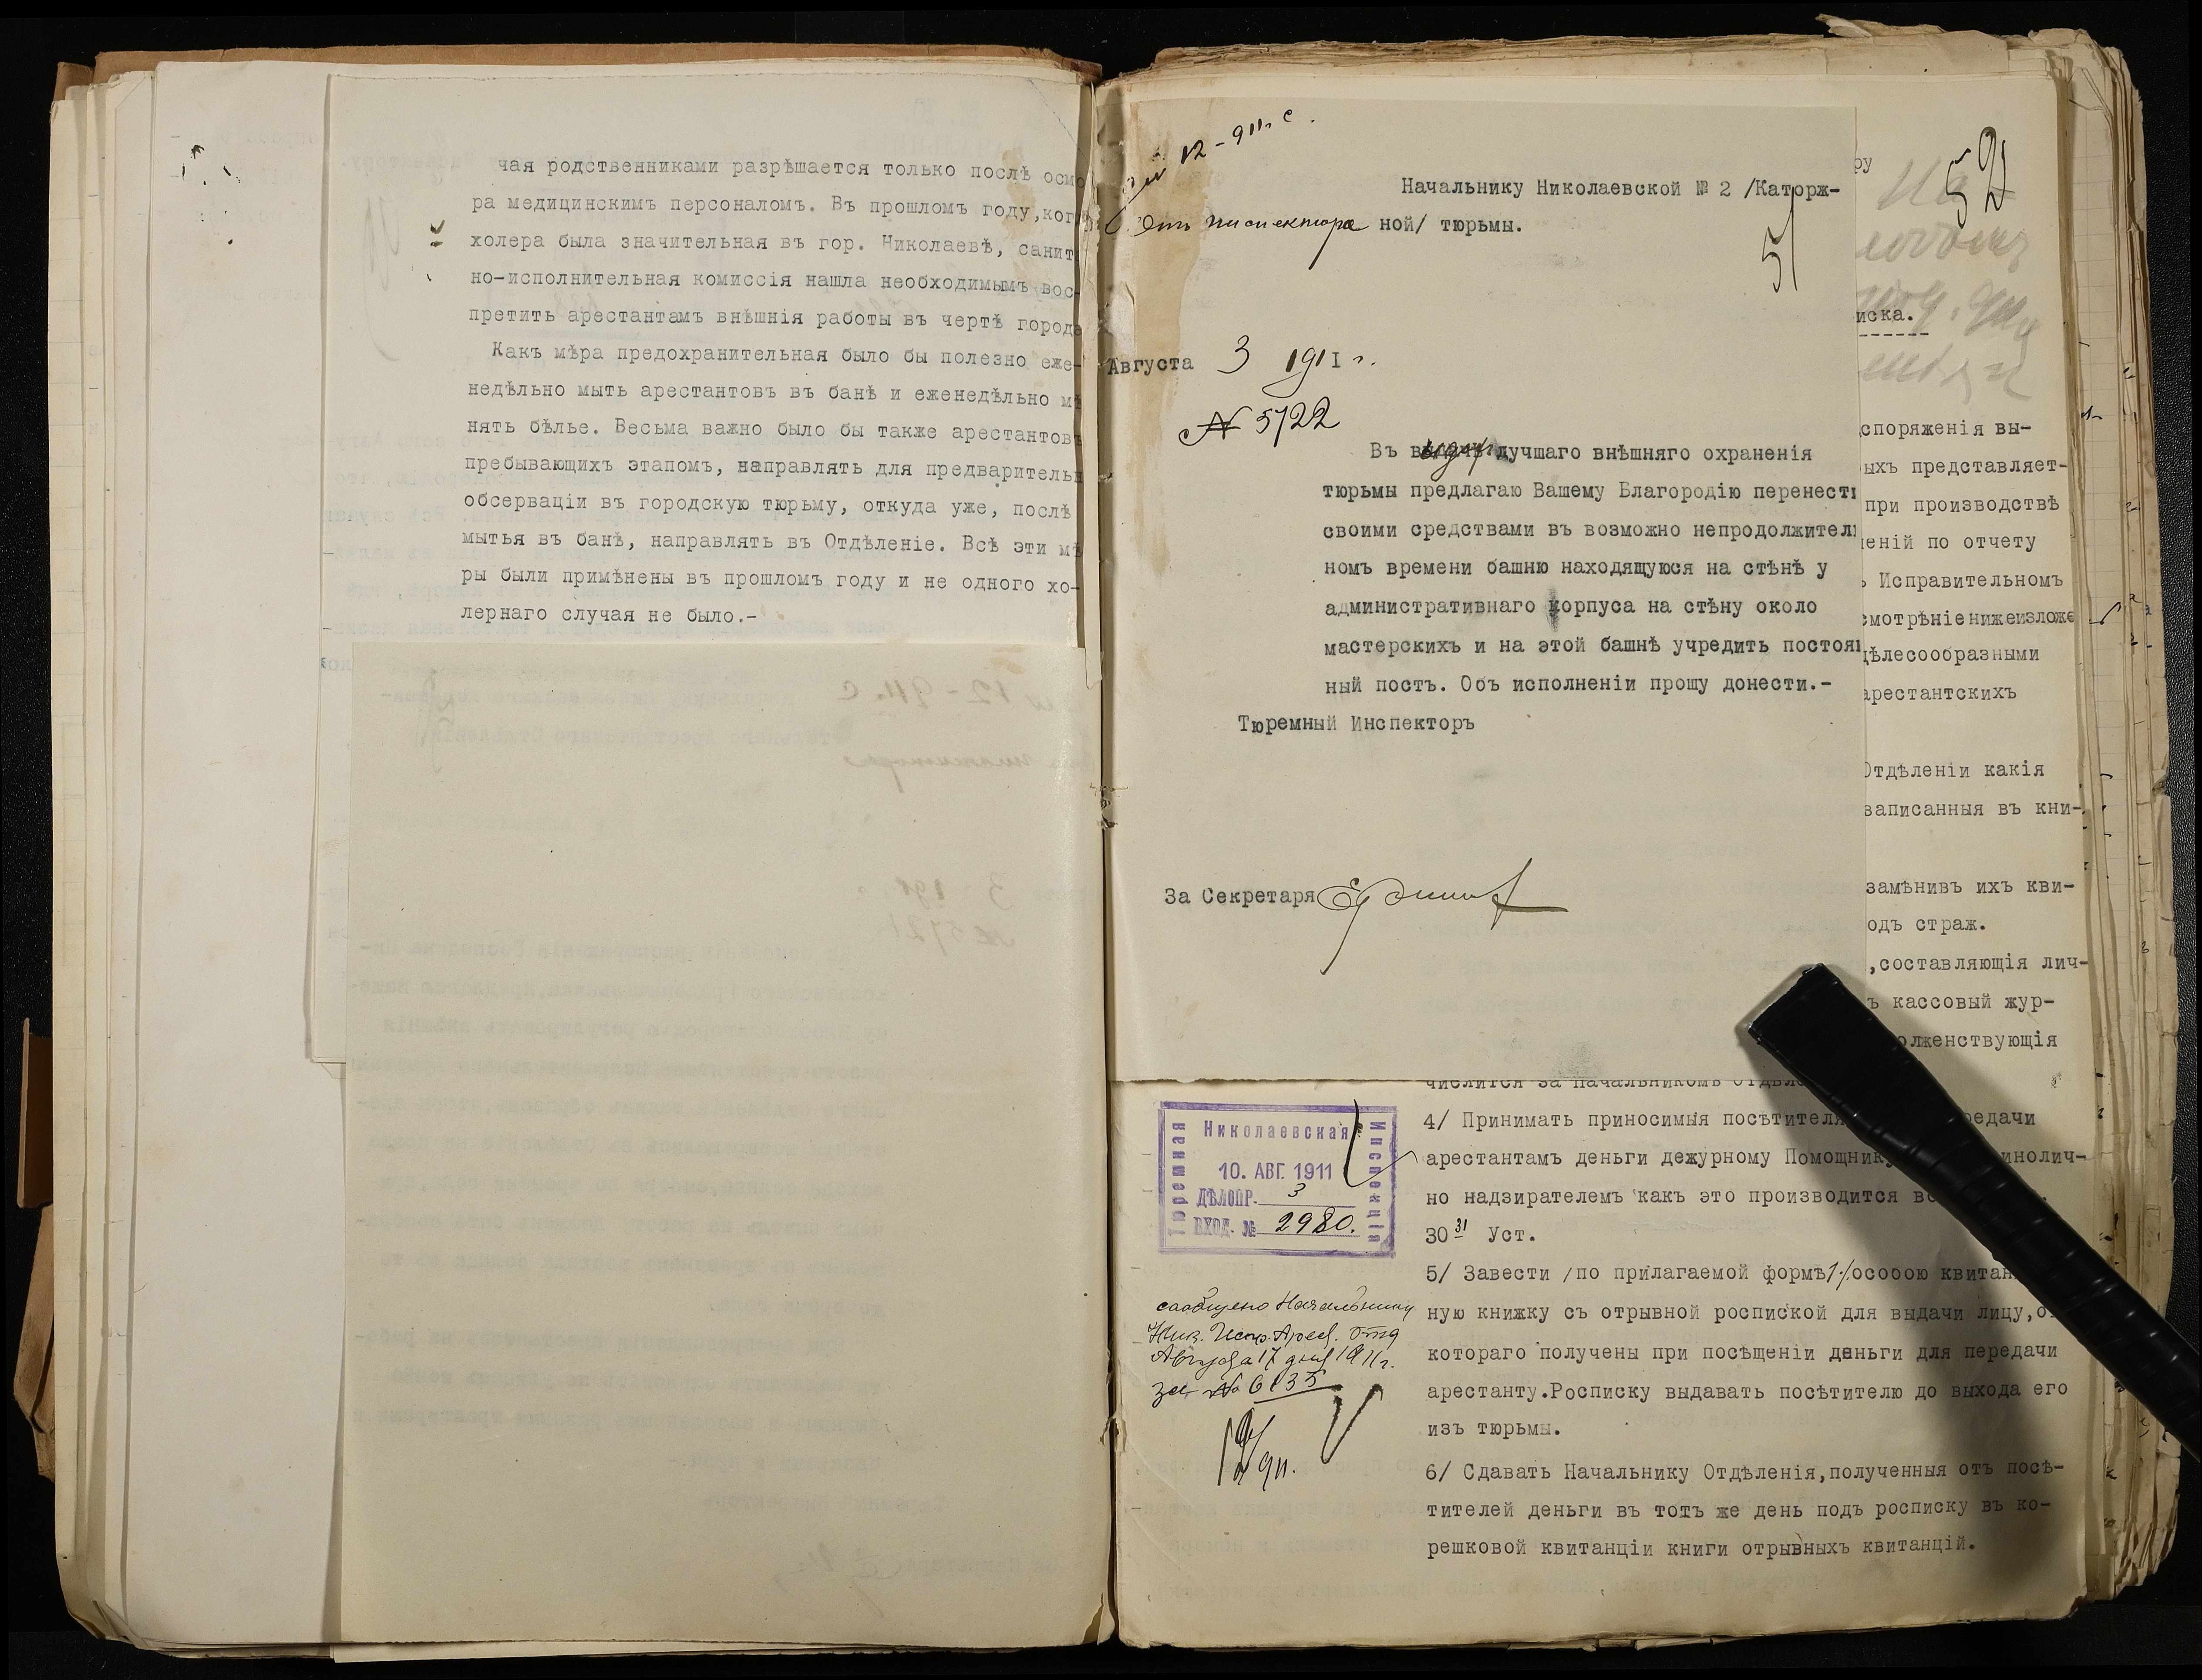 чая родственниками разрѣшается только послѣ осмо
ра медицинскимъ персоналомъ. Въ прошломъ году,ког
холера была значительная въ гор. Николаевѣ, санит
но-исполнительная комиссія нашла необходимымъ вос-
претить арестантамъ внѣшнія работы въ чертѣ города
Какъ мѣра предохранительная было бы полезно еже-
недѣльно мыть арестантовъ въ банѣ и еженедѣльно мѣ
нять бѣлье. Весьма важно было бы также арестантовъ
пребывающихъ этапомъ, направлять для предварительн
обсерваціи въ городскую тюрьму, откуда уже, послѣ
мытья въ банѣ, направлять въ Отдѣленіе. Всѣ эти мѣ
ры были примѣнены въ прошломъ году и не одного хо-
лернаго случая не было.-
12-911. с.
Отъ инспектора
Начальнику Николаевской № 2 /Каторж-
ной/ тюрьмы.
51
Августа 3 1911 г.
№ 5722
Въ виду лучшаго внѣшняго охраненія
тюрьмы предлагаю Вашему Благородію перенести
своими средствами въ возможно непродолжител
номъ времени башню находящуюся на стѣнѣ у
административнаго корпуса на стѣну около
мастерскихъ и на этой башнѣ учредить постоян
ный постъ. Объ исполненіи прошу донести.-
Тюремный Инспекторъ
За Секретаря
52
ру
иска.
споряженія вы-
ыхъ представляет-
при производствѣ
еній по отчету
ъ Исправительномъ
смотрѣніенижеизложе
цѣлесообразными
арестантскихъ
Отдѣленіи какія
записанныя въ кни-
замѣнивъ ихъ кви-
одъ страж.
,составляющія лич-
ъ кассовый жур-
олженствующія
числится за Начальникомъ Отдѣле
4/ Принимать приносимыя посѣтителя редачи
арестантамъ деньги дежурному Помощнику инолич-
но надзирателемъ какъ это производится
30 31 Уст.
5/ Завести /по прилагаемой формѣ1/особою квитан
ную книжку съ отрывной роспиской для выдачи лицу,о
котораго получены при посѣщеніи деньги для передачи
арестанту.Росписку выдавать посѣтителю до выхода его
изъ тюрьмы.
6/ Сдавать Начальнику Отдѣленія,полученныя отъ посѣ-
тителей деньги въ тотъ же день подъ росписку въ ко-
решковой квитанціи книги отрывныхъ квитанцій.
Николаевская
Тюремная
Инспекція
10. АВГ. 1911
ДѢЛОПР. 3
ВХОД. № 2980.
сообщено Начальнику
Ник. Испр. Арест. Отд
Августа 17 дня 1911г.
за № 6135